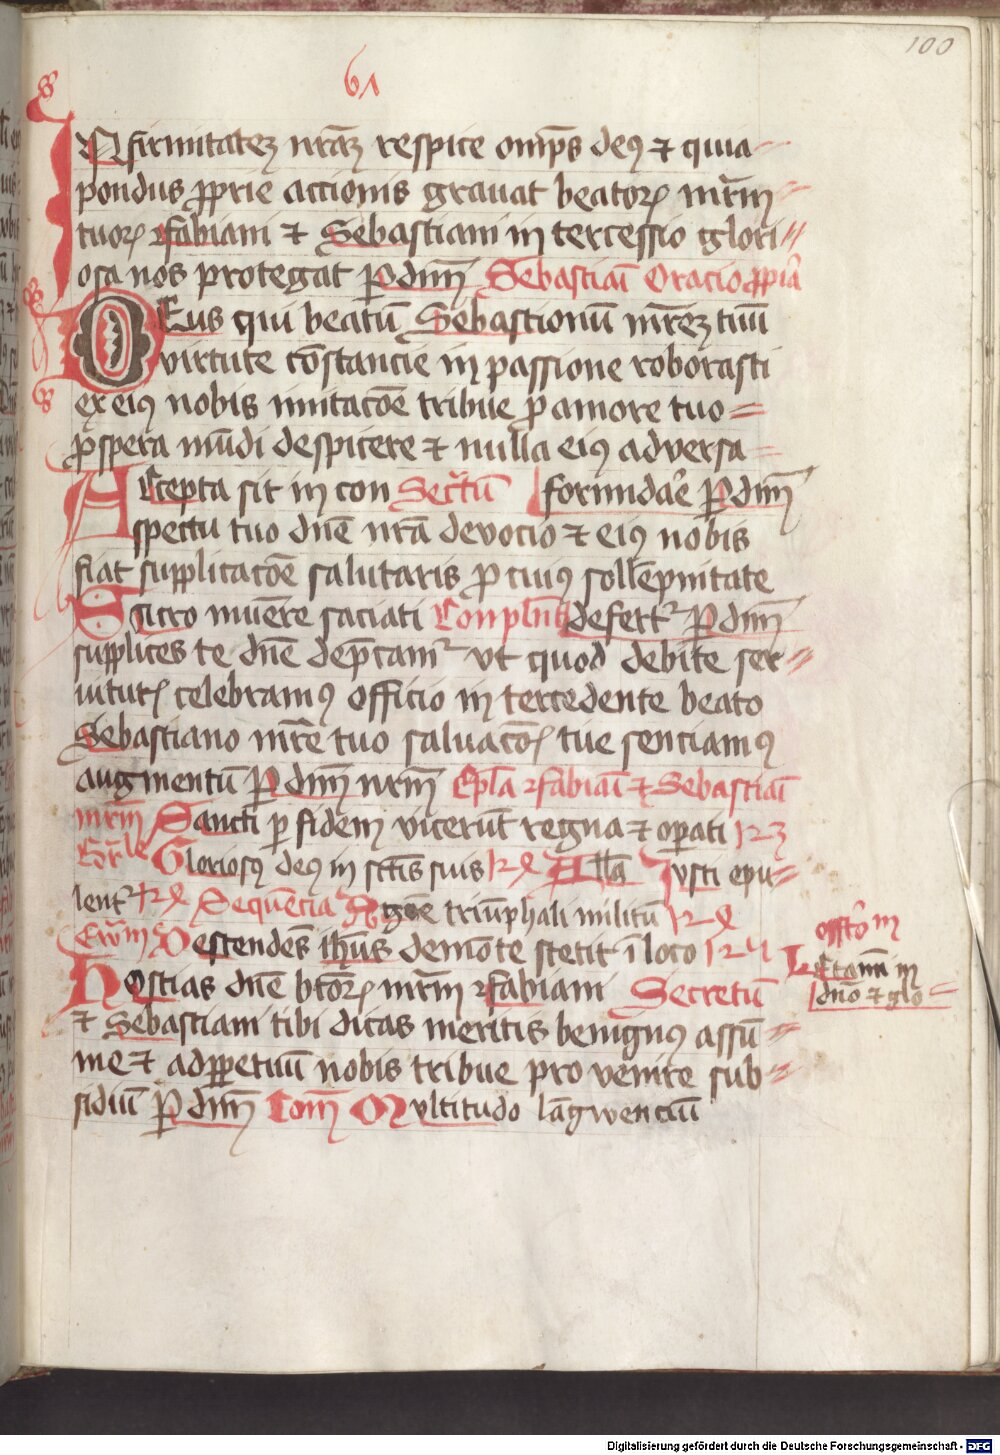 100
61
INfirmitateꝫ nr̄aꝫ respice omp̄s deꝰ ⁊ quia
pondus ꝓprie actionis grauat beatoꝝ mr̄m
tuoꝝ fabiani ⁊ Sebastiani in tercessio glori
osa nos protegat P dnm̄ Sebastiai Oracio ꝓpia
DEus qui beatū Sebastionū mr̄eꝫ tuū
virtute cōstancie in passione roborasti
ex eiꝰ nobis imitacōe tribue ꝓ amore tuo
prospera mūdi despicere ⁊ nulla eiꝰ adversa
ACcepta sit in con Secr̄tū formidar̄e P dnm̄
spectu tuo dnē nr̄a devocio ⁊ eiꝰ nobis
fiat supplicacōe salutaris ꝓ cuiꝰ sollēpnitate
Sacro munēre saciati Conplend̄ defertᷣ P dnm̄
supplices te dnē dep̄camᷣ vt quod debite ser
uitutꝭ celebramꝰ officio in tercedente beato
Sebastiano mr̄e tuo saluacōꝭ tue senciamꝰ
augmentū P dnm̄ nrm̄ Epl̄a fabiāi ⁊ Sebastiāi
mr̄m Sancti p̱ fidem vicerūt regna ⁊ opati
Gloriosꝰ deꝰ in sctīs suis All̄a Iusti epu
lentᷣ Sequēcia Agōe triūphali militū
Ewm̄ Destendēs ih̄us de mōte stetit ī loco
offr̄o m
Letamī in
dnō ⁊ glo
Hostias dnē btōꝝ mr̄m fabiani Secretū
⁊ Sebastiani tibi dicas meritis benignꝰ assū
me ⁊ adꝑpetuū nobis tribue pro venire sub
sidiū P dnm̄ Com̄ Multitudo lāgwenciū
Digitalisierung gefördert durch die Deutsche Forschungsgemeinschaft - DFG